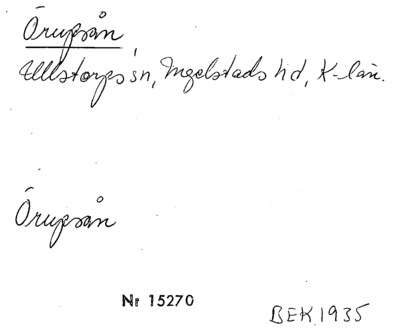 Örupsån
Ullstorps sn, Ingelstads hd, K-län.
Örupsån
Nr 15270
BEK 1935